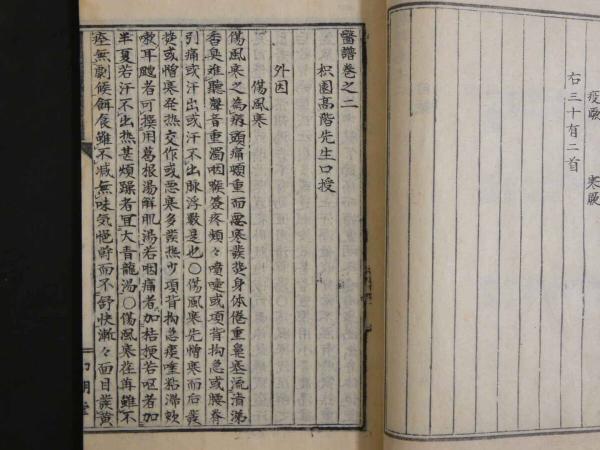 疫厥　寒厥
右三十有二首
醫譜巻之二
枳園髙階先生口授
外因
傷風寒
傷風寒之為病頭痛頭重而惡寒發熱身体倦重鼻塞流清涕
香臭難聽聲音重濁咽喉痿疼頻々嚏唾或項背拘急或腰脊
引痛或汗出或汗不出脉浮數是也〇傷風寒先憎寒而后發
熱或憎寒発热交作或惡寒多發热少項背拘急痰唾粘滞欬
嗽耳聾者可撰用葛根湯解肌湯若咽痛者加桔梗若嘔者加
半夏若汗不出热甚煩躁者宜大青龍湯〇傷風寒荏苒雖不
痊無劇候餌食雖不减無味気悒欝而不舒快漸々面目發黄